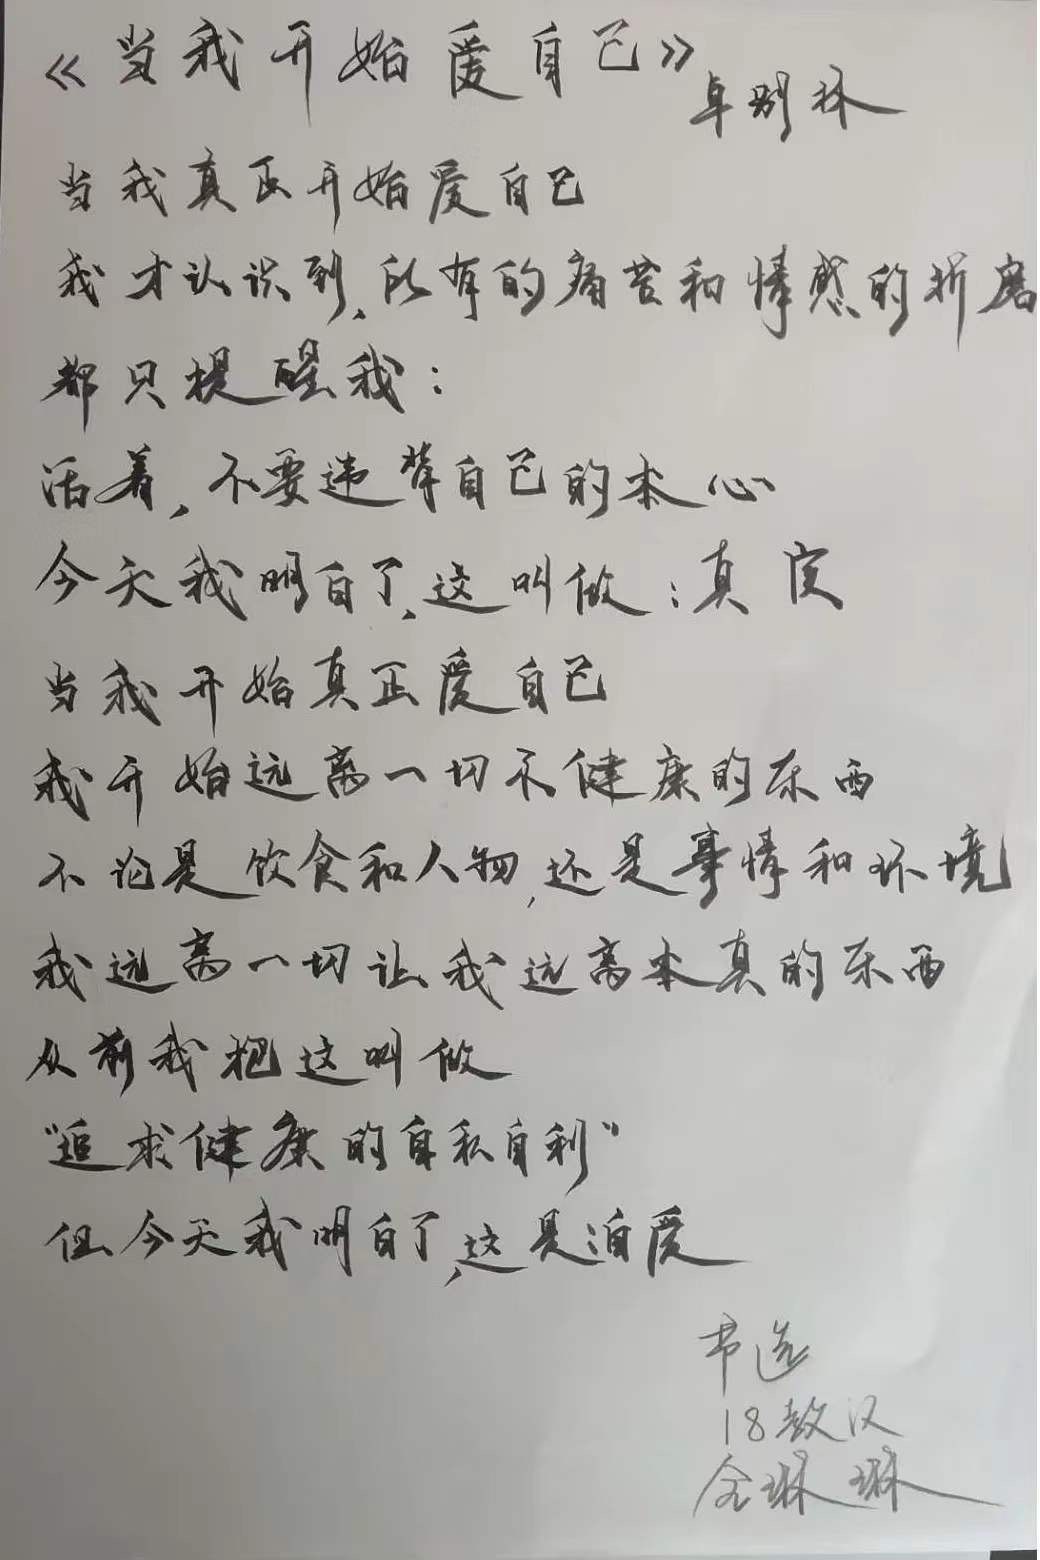 《当我开始爱自己》
卓别林
当我真正开始爱自己
我才认识到,所有的痛苦和情感的折磨
都只提醒我:
活着,不要违背自己的本心
今天我明白了,这叫做:真实
当我开始真正爱自己
我开始远离一切不健康的东西
不论是饮食和人物,还是事情和环境
我远离一切让我远离本真的东西
从前我把这叫做
“追求健康的自私自利”
但今天我明白了,这是自爱
节选
18敖汉
金琳琳